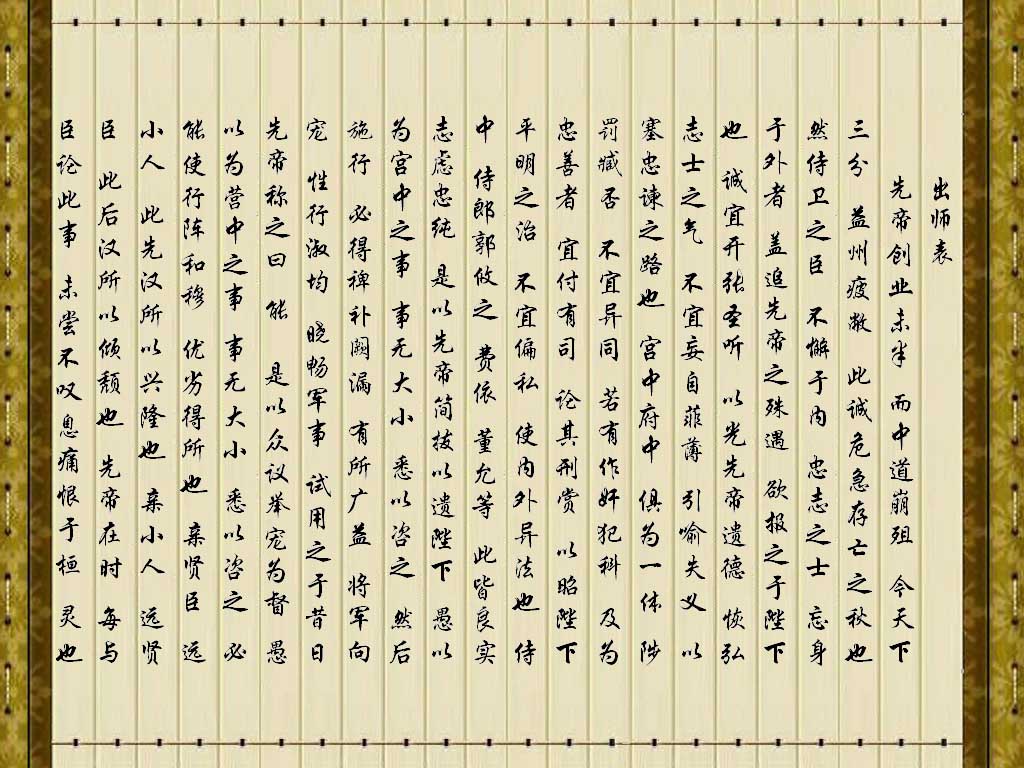 出师表
先帝创业未半 而中道崩殂 今天下
三分 益州疲敝 此诚危急存亡之秋也
然侍卫之臣 不懈于内 忠志之士 忘身
于外者 盖追先帝之殊遇 欲报之于陛下
也 诚宜开张圣听 以光先帝遗德 恢弘
志士之气 不宜妄自菲薄 引喻失义 以
塞忠谏之路也 宫中府中 俱为一体 陟
罚臧否 不宜异同 若有作奸犯科 及为
忠善者 宜付有司 论其刑赏 以昭陛下
平明之治 不宜偏私 使内外异法也 侍
中 侍郎郭攸之 费依 董允等 此皆良实
志虑忠纯 是以先帝简拔以遗陛下 愚以
为宫中之事 事无大小 悉以咨之 然后
施行 必得裨补阙漏 有所广益 将军向
宠 性行淑均 晓畅军事 试用之于昔日
先帝称之曰 能 是以众议举宠为督 愚
以为营中之事 事无大小 悉以咨之 必
能使行阵和穆 优劣得所也 亲贤臣 远
小人 此先汉所以兴隆也 亲小人 远贤
臣 此后汉所以倾颓也 先帝在时 每与
臣论此事 未尝不叹息痛恨于桓 灵也